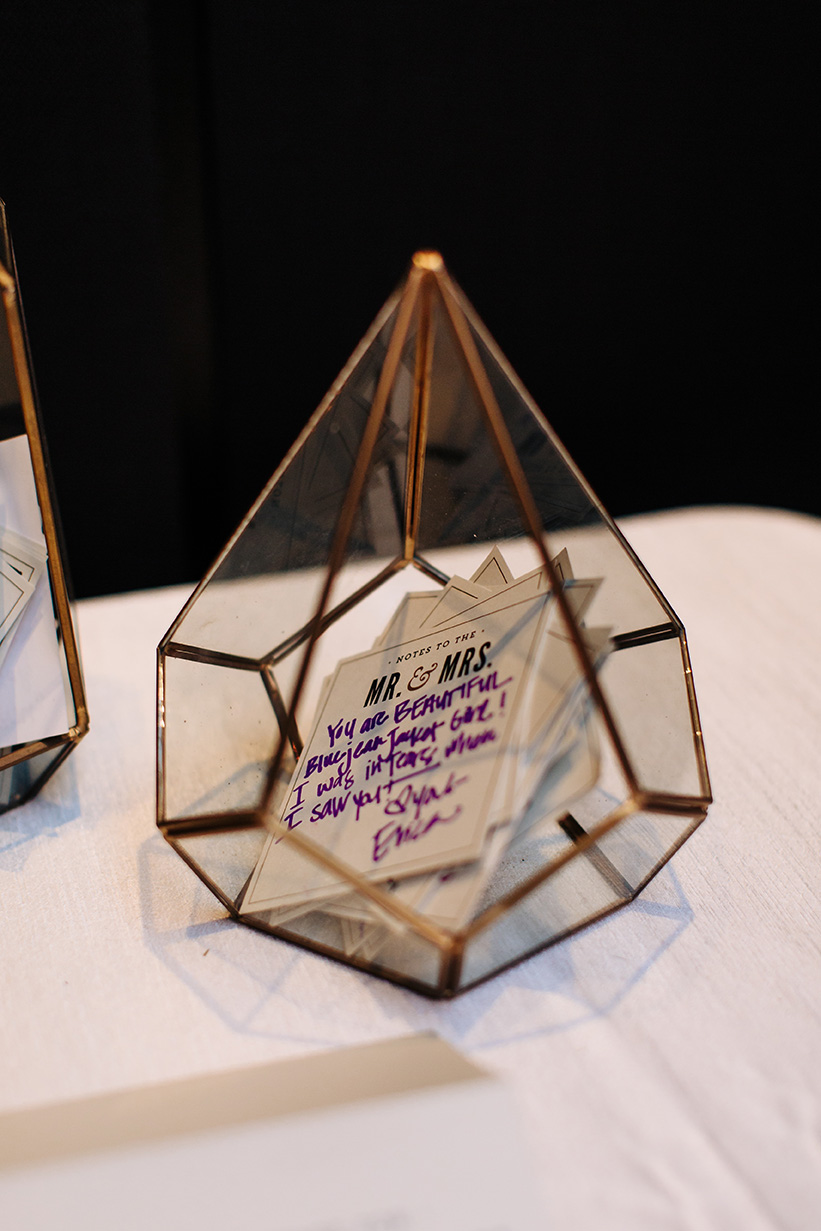 · NOTES TO THE ·
MR. & MRS.
YOU ARE BEAUTIFUL
Blue jean Jacket Girl!
I was in tears when
I SAW YOU!
Erica